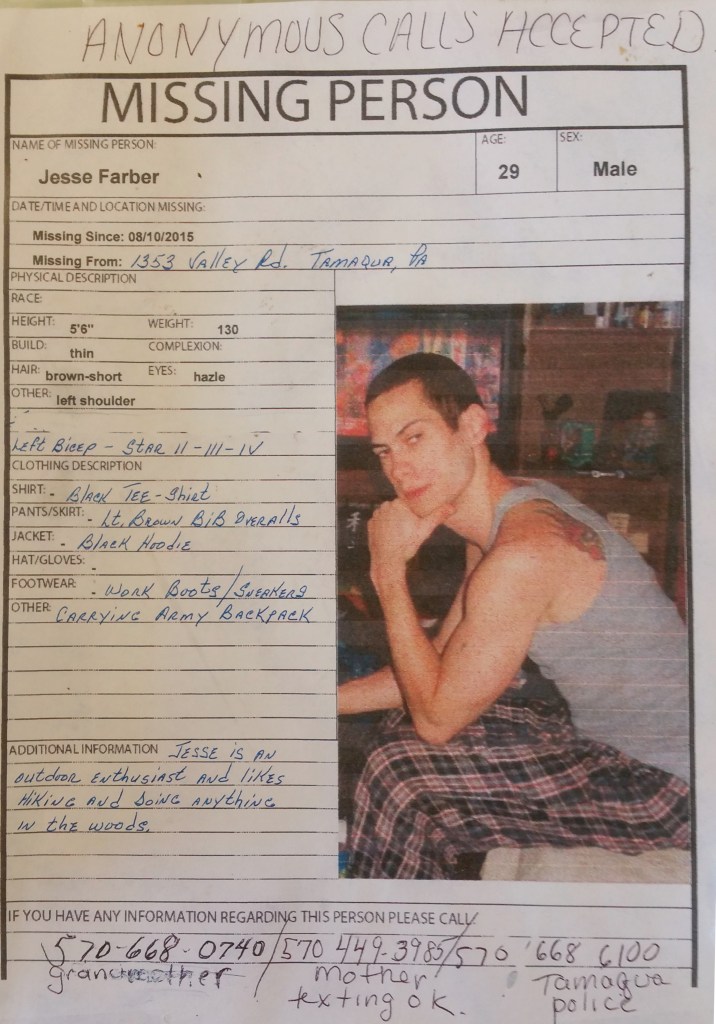 ANONYMOUS CALLS ACCEPTED
MISSING PERSON
NAME OF MISSING PERSON: AGE: SEX:
Jesse Farber 29 Male
DATE/TIME AND LOCATION MISSING:
Missing Since: 08/10/2015
Missing From: 1353 Valley Rd. Tamaqua, PA
PHYSICAL DESCRIPTION
RACE:
HEIGHT: 5'6" WEIGHT: 130
BUILD: thin COMPLEXION:
HAIR: brown-short EYES: hazle
OTHER: left shoulder
Left Bicep - Star II-III-IV
CLOTHING DESCRIPTION
SHIRT: - Black Tee-Shirt
PANTS/SKIRT: - Lt. Brown Bib Overalls
JACKET: - Black Hoodie
HAT/GLOVES: -
FOOTWEAR: - Work Boots/Sneakers
OTHER: Carrying Army Backpack
ADDITIONAL INFORMATION Jesse is an
outdoor enthusiast and likes
Hiking and doing anything
in the woods.
IF YOU HAVE ANY INFORMATION REGARDING THIS PERSON PLEASE CALL
570-668-0740/570 449-3985/570 668 6100
grandmother mother Tamaqua
texting ok. police